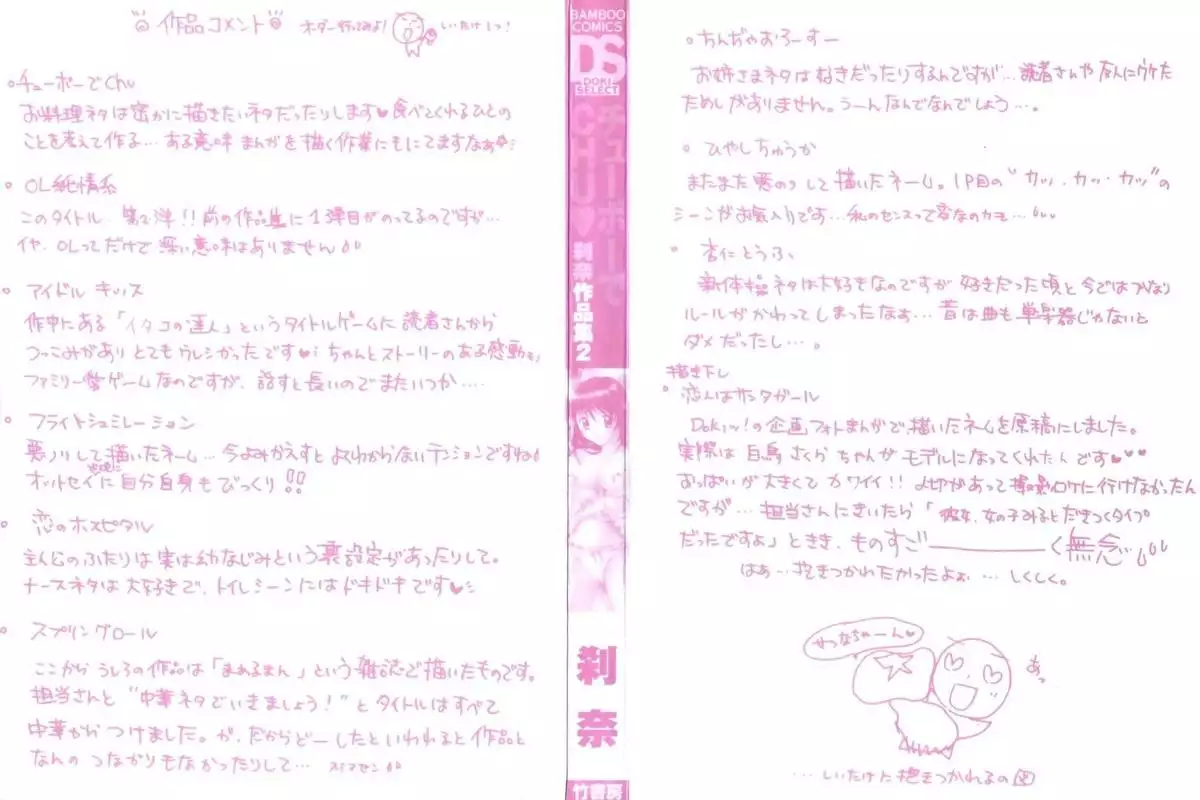 作品コメント
オーダー行ってみよ!
しいたけしっ!
チューボーでChu
お料理ネタは密かに描きたいネタだったりします♥食べてくれるひとの
ことを考えて作る…ある意味まんがを描く作業にもにてますなぁ
OL純情系
このタイトル、第2弾!!前の作品集に1弾目がのってるのですが…
イヤ、OLってだけで深い意味はありません
アイドルキッス
作中にある「イタコの達人」というタイトルゲームに読者さんから
つっこみがありとてもウレシかったです♥ちゃんとストーリーのある感動
ファミリー愛ゲームなのですが、話すと長いのでまたいつか….
フライトシュミレーション
悪ノリして描いたネーム…今よみかえすとよくわからないテンションですね
オットセイに自分自身もびっくり!!
恋のホスピタル
主人公のふたりは実は幼なじみという裏設定があったりして。
ナースネタは大好きで、トイレシーンにはドキドキです♥
スプリングロール
ここからうしろの作品は「まぁるまん」という雑誌で描いたものです。
担当さんと"中華ネタでいきましょう!"とタイトルはすべて
中華からつけました。が、だからどーしたといわれると作品と
なんのつながりもなかったりして…スイマセン
BAMBOO COMICS
DS
DOKI SELECT
チューボーでCHU♥
刹奈作品集2
刹奈
竹書房
ちんぢゃおろーすー
お姉さまネタは好きだったりするんですが…読者さんや友人にウケた
ためしがありません。うーんなんでなんでしょう…。
ひやしちゅうか
またまた悪のりして描いたネーム。1P目の"カッ・カッ・カッ"の
シーンがお気入りです…私のセンスって変なのカモ…
杏仁とうふ
新体操ネタは大好きなのですが好きだった頃と今ではかなり
ルールがかわってしまったなぁ…昔は曲も単楽器じゃないと
ダメだったし…。
描き下し
恋人はサンタガール
Dokiッ!の企画フォトまんがで描いたネームを原稿にしました。
実際は白鳥さくらちゃんがモデルになってくれたんです♥♥♥
おっぱいが大きくてカワイイ!!〆切があって撮影ロケに行けなかったん
ですが…担当さんにきいたら「彼女、女の子みるとだきつくタイプ
だったですよ」ときき、ものすご――く無念…。
はぁ…抱きつかれたかったよぉ…しくしく。
せつなちゃーん♥
あっ
…しいたけに抱きつかれるの図